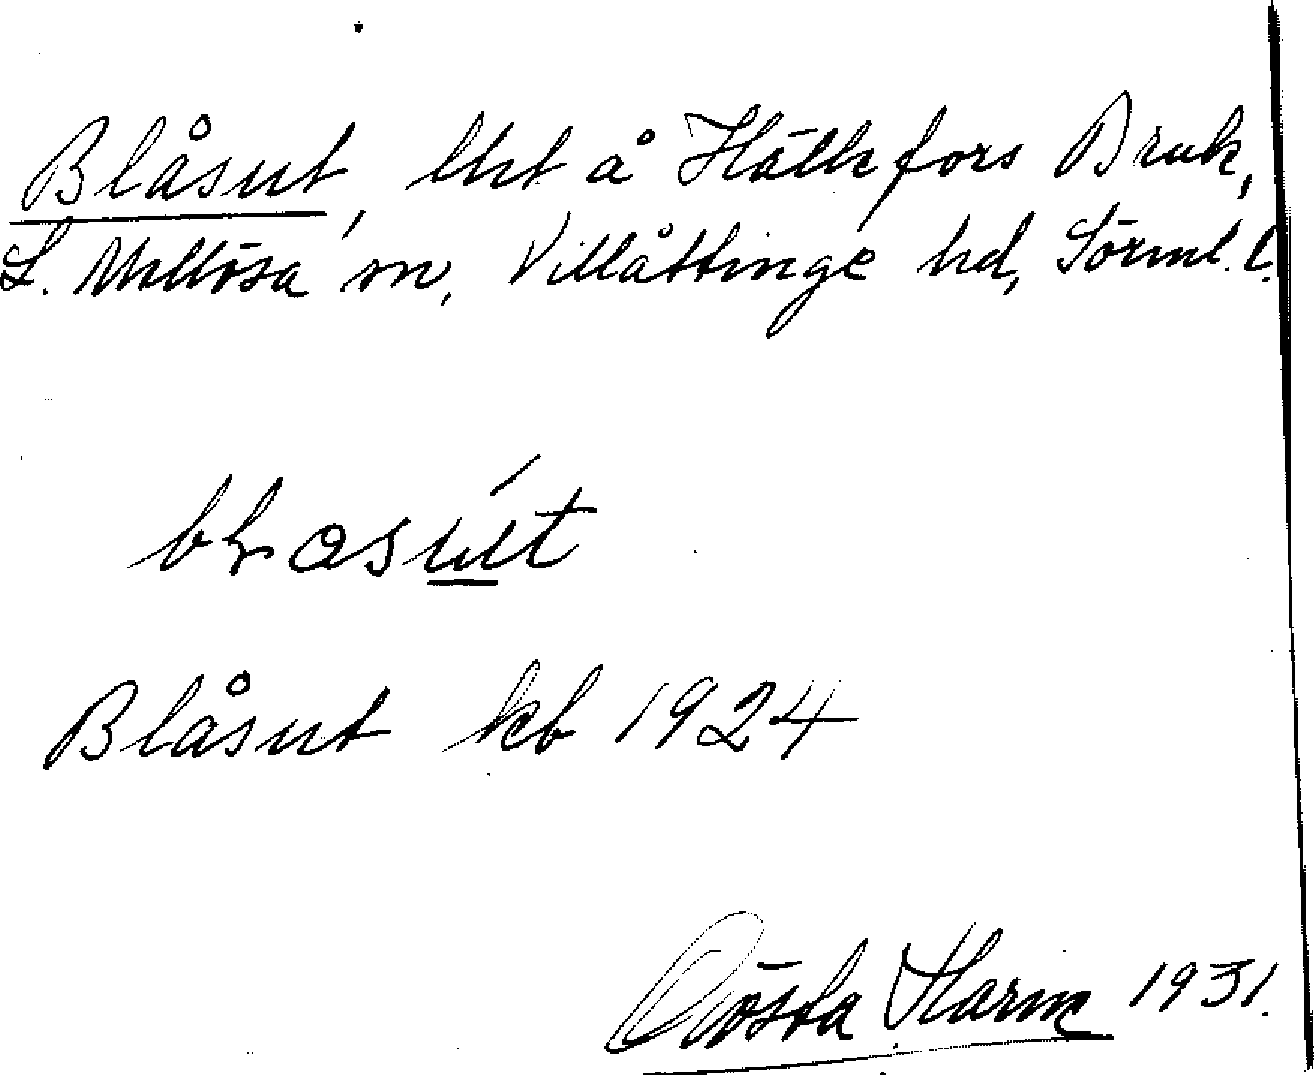 Blåsut, lht å Hälleforss Bruk,
L. Mellösa sn, Villåttinge hd, Sörml. l.
Blåsut kb 1924
Gösta Harm 1931.